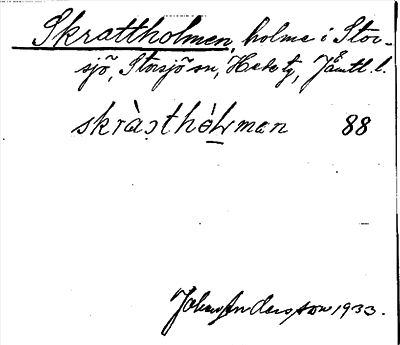 Skrattholmen, holme i Stor-
sjö, Storsjö sn, Hede tg, Jämtl. l.
skràt̀hól̀men 88
Johan Andersson 1933.